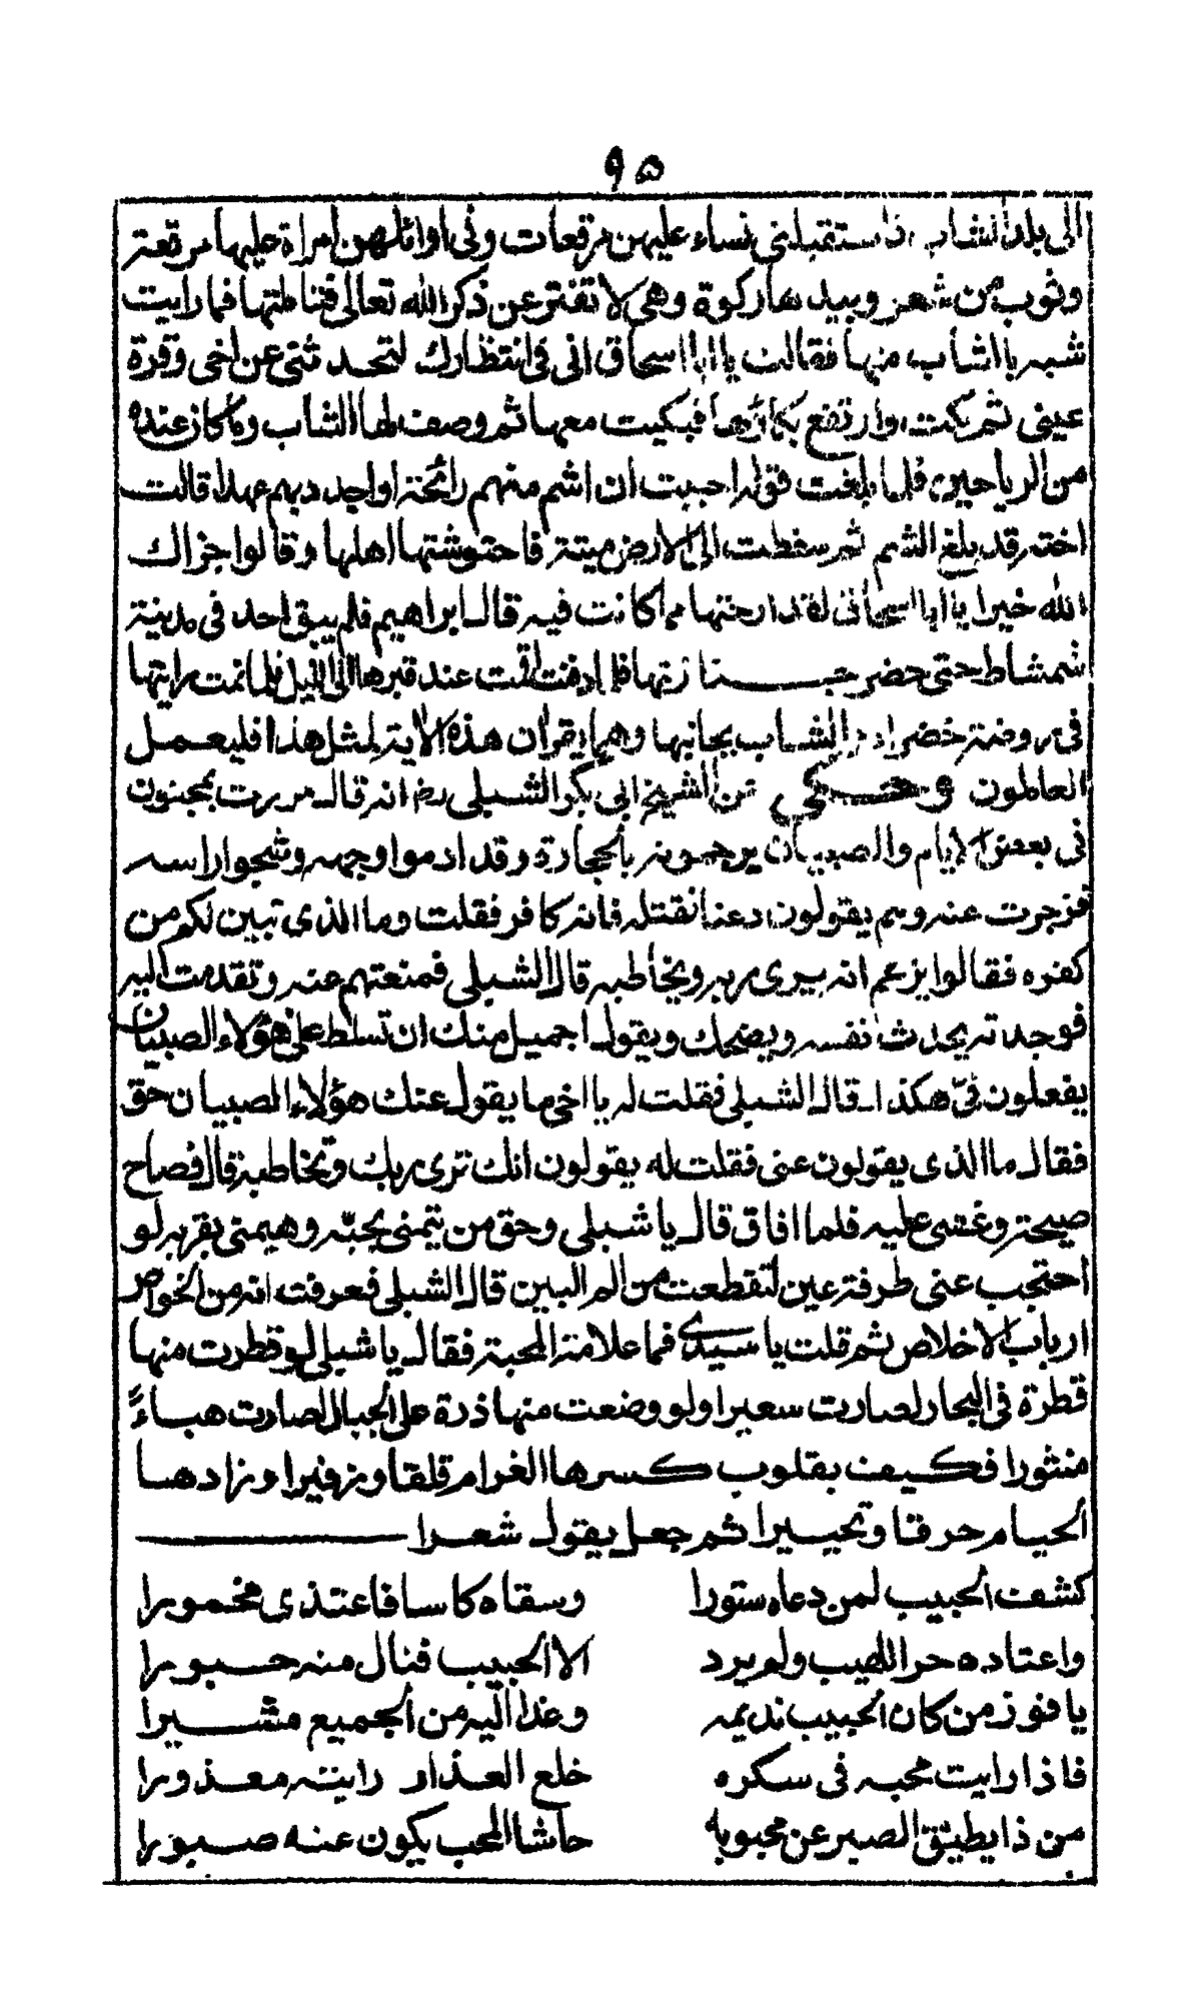 ٩٥
الى بلد الشاب فاستقبلنى نساء عليهن مرقعات وفى اوائلهن امراة عليها مرقعة
وثوب من شعر وبيدها ركوة وهى لا تفتر عن ذكر الله تعالى فتاملتها فما رايت
شبه بالشاب منها فقالت يا ابا اسحاق انى فى انتظارك لتحدثنى عن اخى وقرة
عينى ثم بكت وارتفع بكاؤها فبكيت معها ثم وصفت لها الشاب وما كان عنده
من الرياحين فلما بلغت قوله احببت ان اشم منهم رائحة او اجد بهم عهدا قالت
اخته قد بلغ الشم ثم سقطت الى الارض ميتة فاحتوشتها اهلها وقالوا جزاك
الله خيرا يا ابا اسحاق لقد ارحتها مما كانت فيه قال ابراهيم فلم يبق احد فى مدينة
شمشاط حتى حضر جنازتها فلما دفنت اقمت عند قبرها الى الليل فلما نمت رايتها
فى روضة خضراء والشاب بجانبها وهما يقران هذه الاية لمثل هذا فليعمل
العاملون وحكى عن الشيخ ابى بكر الشبلى رض انه قال مررت بمجنون
فى بعض الايام والصبيان يرجمونه بالحجارة وقد ادموا وجهه وشجوا راسه
فزجرت عنه وهم يقولون دعنا نقتله فانه كافر فقلت وما الذى تبين لكم من
كفره فقالوا يزعم انه يرى ربه ويخاطبه قال الشبلى فمنعتهم عنه وتقدمت اليه
فوجدته يحدث نفسه ويضحك ويقول اجميل منك ان تسلط على هؤلاء الصبيان
يفعلون فىّ هكذا قال الشبلى فقلت له يا اخى ما يقول عنك هؤلاء الصبيان حق
فقال ما الذى يقولون عنى فقلت له يقولون انك ترى ربك وتخاطبه قال فصاح
صيحة وغشى عليه فلما افاق قال يا شبلى وحق من تيمنى بحبّه وهيمنى بقربه لو
احتجب عنى طرفة عين لتقطعت من الم البين قال الشبلى فعرفت انه من الخواص
ارباب الاخلاص ثم قلت يا سيدى فما علامة المحبة فقال يا شبلى لو قطرت منها
قطرة فى البحار لصارت سعيرا ولو وضعت منها ذرة على الجبال لصارت هباءً
منثورا فكيف بقلوب كسرها الغرام قلقا وزفيرا وزادها
الحيام حرقا وتحييرا ثم جعل يقول شعرا
كشف الحبيب لمن دعاه ستورا وسقاه كاسا فاعتذى مخمورا
واعتاده حر اللهيب ولم يرد الا الحبيب فنال منه حبورا
يا فوز من كان الحبيب نديمه وغدا اليه من الجميع مشيرا
فاذا رايت محبه فى سكره خلع العذار رايته معذورا
من ذا يطيق الصبر عن محبوبه حاشا المحب يكون عنه صبورا